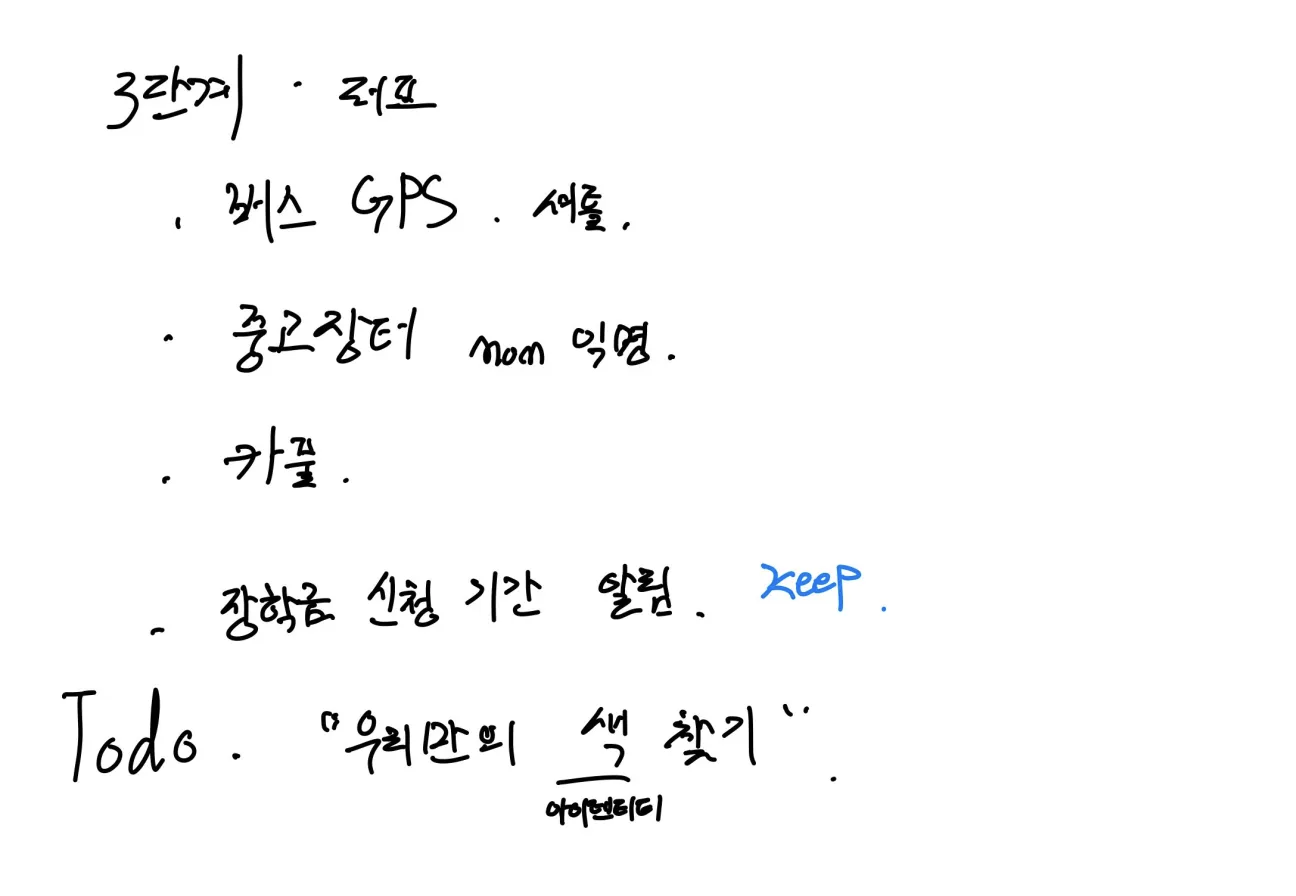 3단계 · 러프
. 버스 GPS . 셔틀.
· 중고장터 non 익명.
. 카풀.
- 장학금 신청 기간 알림. Keep.
Todo. "우리만의 색 찾기".
아이덴티티